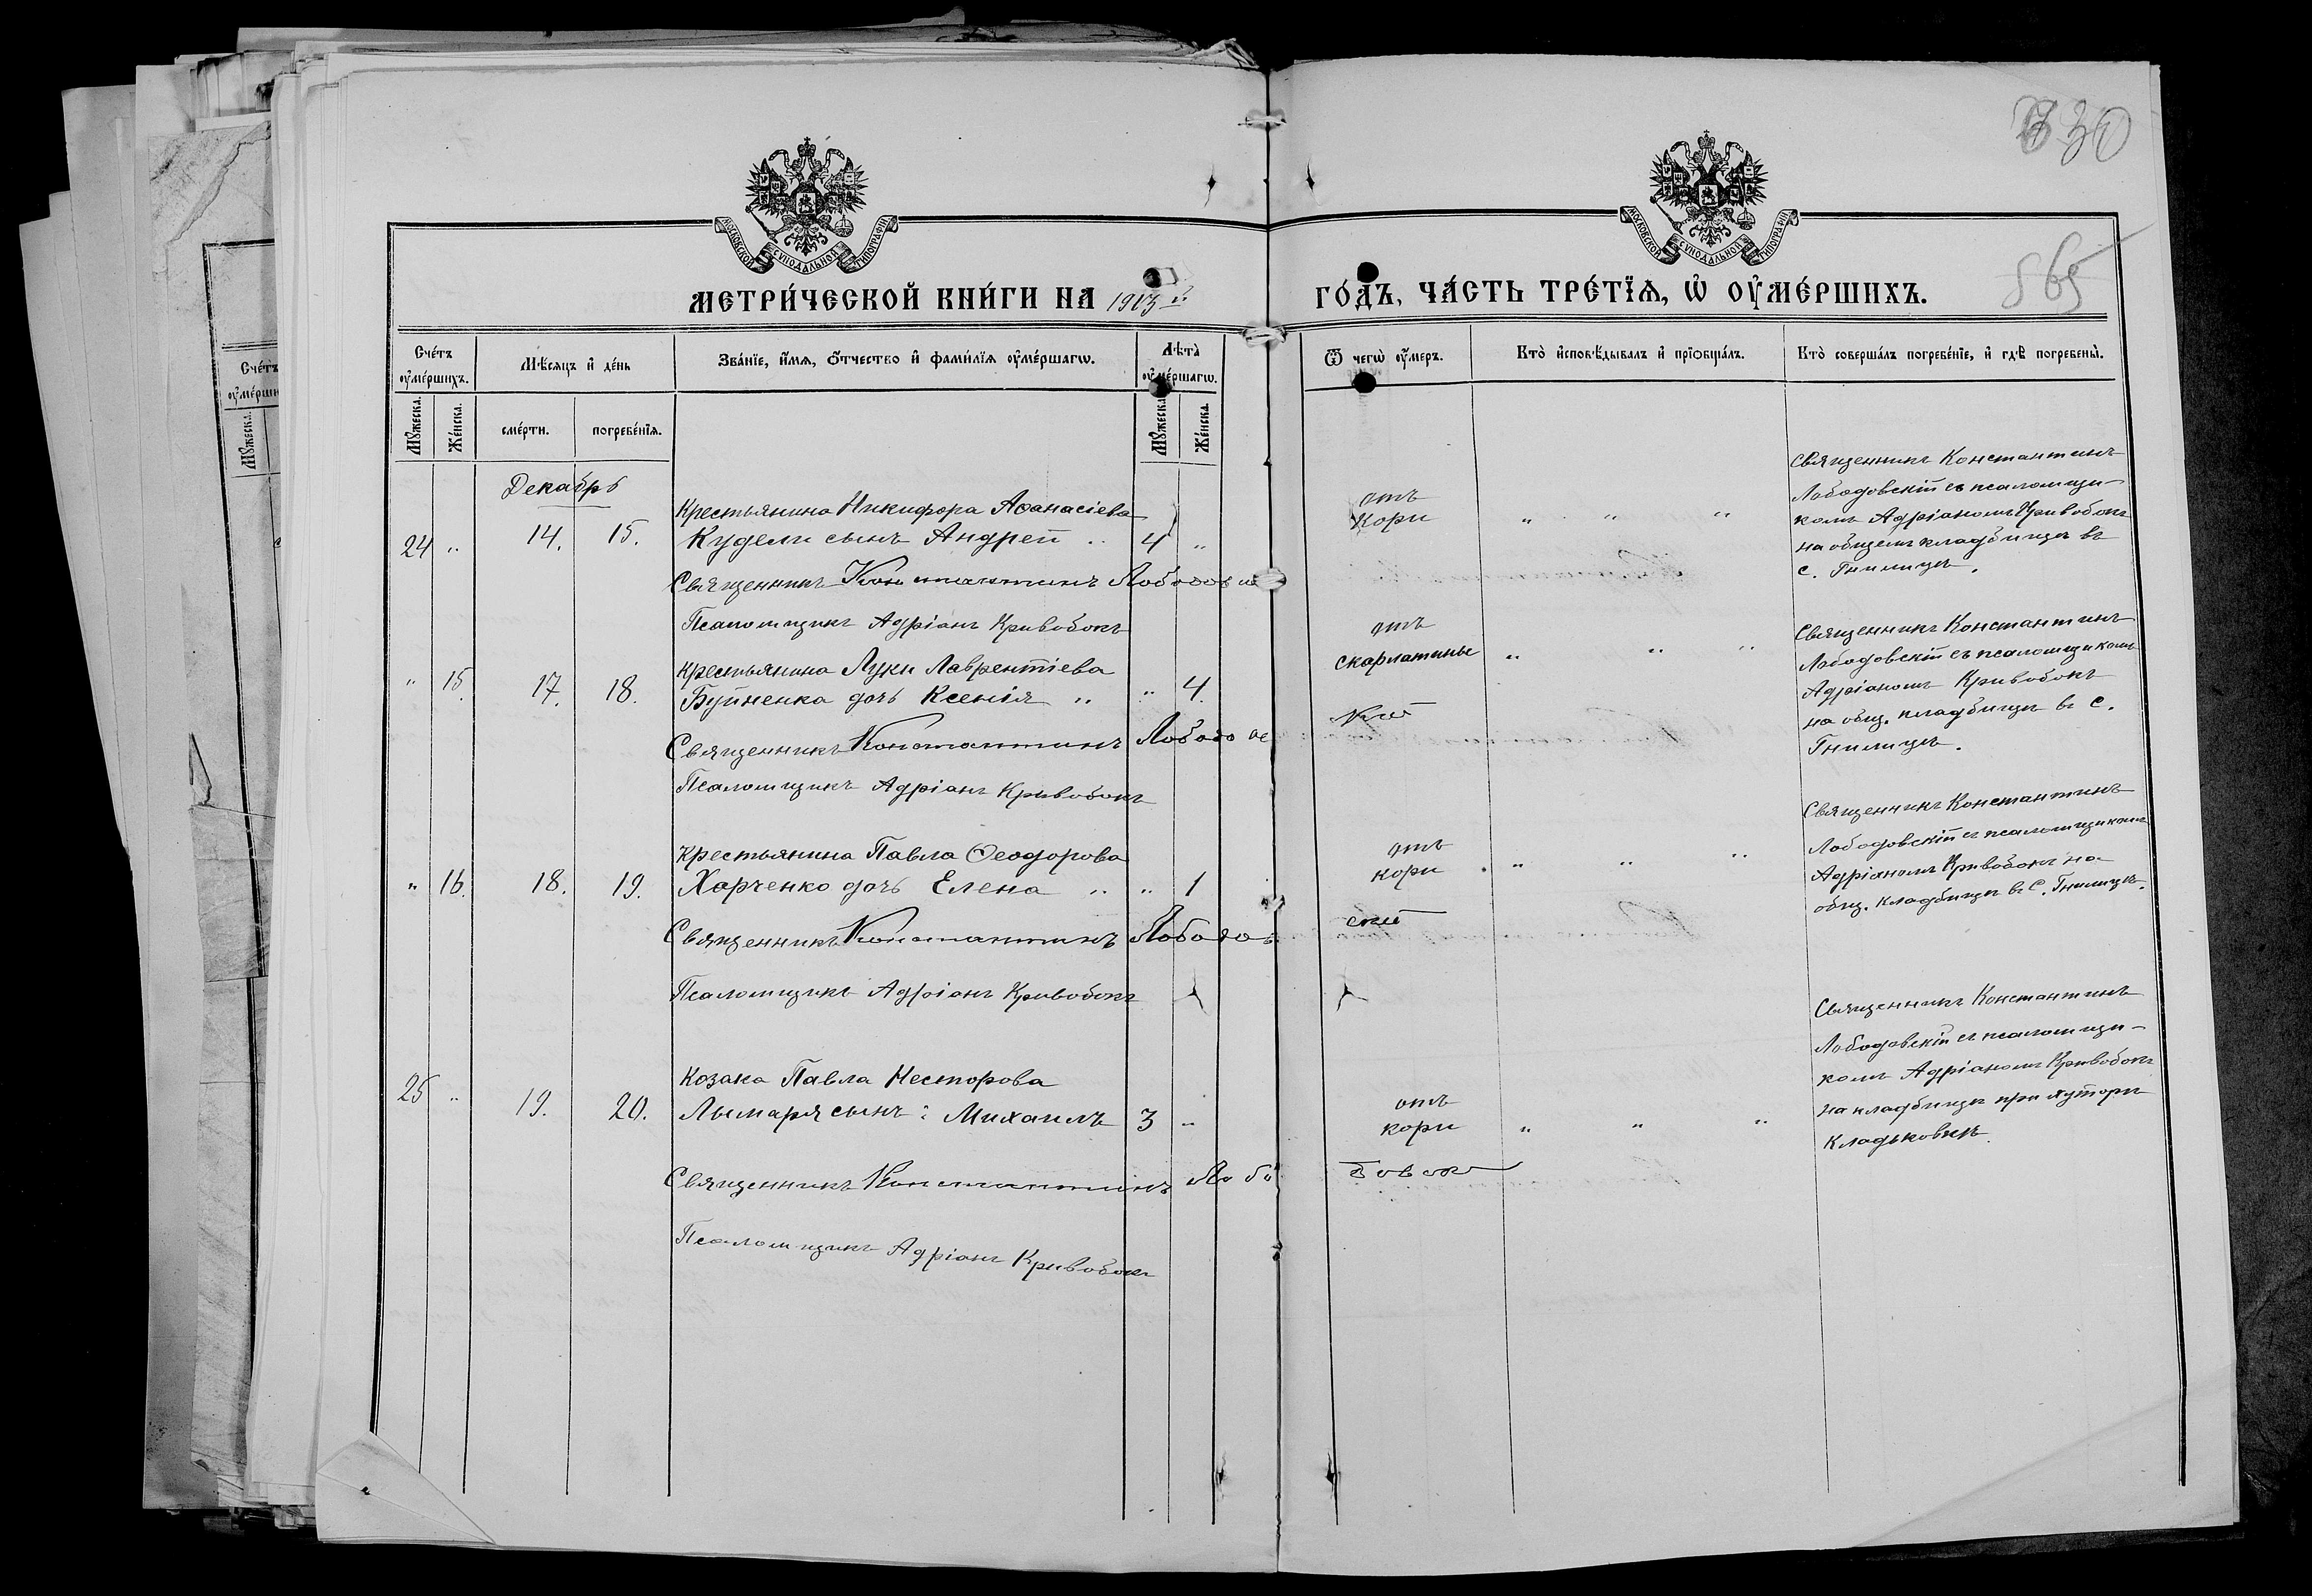 830
565
МОСКОВСКОЙ СѴНОДАЛЬНОЙ ТИПОГРАФІИ
МОСКОВСКОЙ СѴНОДАЛЬНОЙ ТИПОГРАФІИ
МЕТРИ́ЧЕСКОЙ КНИ́ГИ НА 1903й
ГО́ДЪ, ЧА́СТЬ ТРЕ́ТЇѦ, Ѡ҆ ОУ҆МЕ́РШИХЪ.
Сче́тъ оу҆ме́ршихъ.
Мѣ́сяцъ и҆ де́нь
Зва́нїе, и҆́мѧ, ѻ҆́тчество и҆ фами́лїѧ оу҆ме́ршагѡ.
Лѣ́та оу҆ме́ршагѡ.
Ѿ чегѡ̀ оу҆́меръ.
Кто̀ и҆сповѣ́дывалъ и҆ прїѻбща́лъ.
Кто̀ соверша́лъ погребе́нїе, и҆ гдѣ̀ погребены̀.
Мꙋ́жеска.
Же́нска.
сме́рти.
погребе́нїѧ.
Мꙋ́жеска.
Же́нска.
Декабрь
24 „ 14. 15.
Крестьянина Никифора Аѳанасіева
Кудели сынъ Андрей „ 4 „
отъ
Кори „ „ „
Священникъ Константинъ
Лободовскій съ псаломщи-
комъ Адріаномъ Кривобокъ
на общемъ кладбищѣ въ
с. Гнилицѣ.
Священникъ Константинъ Лободовскій
Псаломщикъ Адріанъ Кривобокъ
„ 15. 17. 18.
Крестьянина Луки Лаврентіева
Буйненка дочь Ксенія „ „ 4.
отъ
скарлатины „ „ „
Священникъ Константинъ
Лободовскій съ псаломщикомъ
Адріаномъ Кривобокъ
на общ. кладбищѣ въ с.
Гнилицѣ.
Священникъ Константинъ Лободовскій
Псаломщикъ Адріанъ Кривобокъ
„ 16. 18. 19.
Крестьянина Павла Ѳеодорова
Харченко дочь Елена „ „ 1
отъ
кори „ „ „
Священникъ Константинъ
Лободовскій съ псаломщикомъ
Адріаномъ Кривобокъ на
общ. кладбищѣ въ С. Гнилицѣ.
Священникъ Константинъ Лободовскій
Псаломщикъ Адріанъ Кривобокъ
25 „ 19. 20.
Козака Павла Несторова
Лымаря сынъ: Михаилъ 3 „
отъ
кори „ „ „
Священникъ Константинъ
Лободовскій съ псаломщи-
комъ Адріаномъ Кривобокъ
на кладбищѣ при хуторѣ
Кладьковкѣ.
Священникъ Константинъ Лободовск
Псаломщикъ Адріанъ Кривобокъ